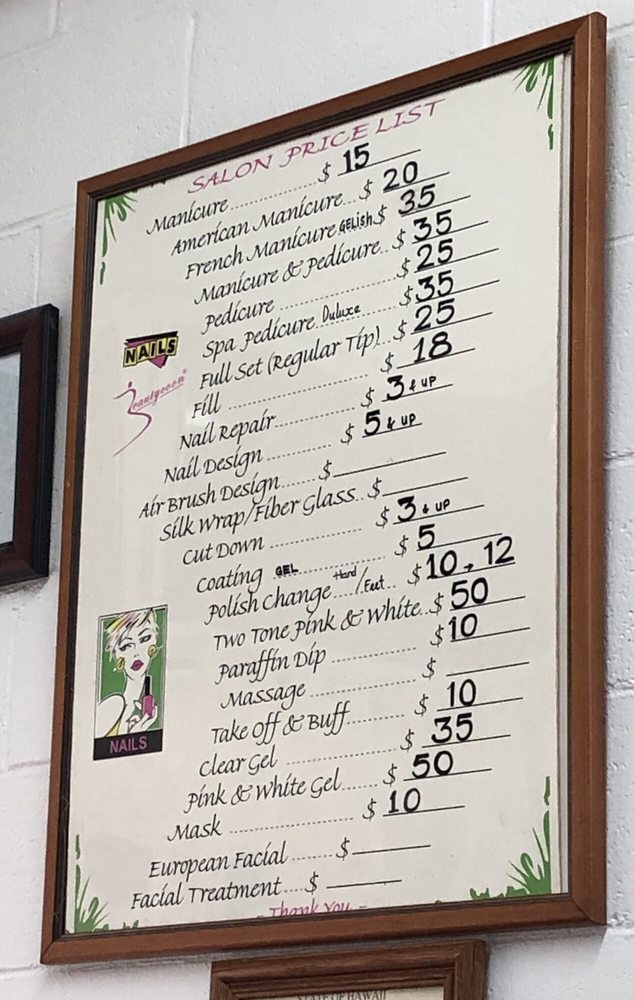 SALON PRICE LIST
Manicure $ 15
American Manicure $ 20
French Manicure GELish $ 35
Manicure & Pedicure $ 35
Pedicure $ 25
Spa Pedicure Duluxe $ 35
Full Set (Regular Tip) $ 25
Fill $ 18
Nail Repair $ 3 & UP
Nail Design $ 5 & UP
Air Brush Design $
Silk Wrap/Fiber Glass $
Cut Down $ 3 & UP
Coating GEL $ 5
Polish Change Hand/Feet $ 10, 12
Two Tone Pink & White $ 50
Paraffin Dip $ 10
Massage $
Take Off & Buff $ 10
Clear Gel $ 35
Pink & White Gel $ 50
Mask $ 10
European Facial $
Facial Treatment $
- Thank You -
NAILS
NAILS
STATE OF HAWAII